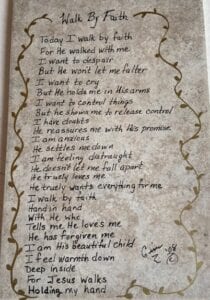 Walk By Faith
Today I walk by faith
For He walked with me
I want to despair
But He won't let me falter
I want to cry
But He holds me in His arms
I want to control things
But he shows me to release control
I have doubts
He reassures me with His promise
I am anxious
He settles me down
I am feeling distraught
He doesn't let me fall apart
He truely loves me
He truely wants everything for me
I walk by faith
Hand in hand
With He who
Tells me He loves me
He has forgiven me
I am His Beautiful child
I feel warmth down
Deep inside
For Jesus walks
Holding my hand